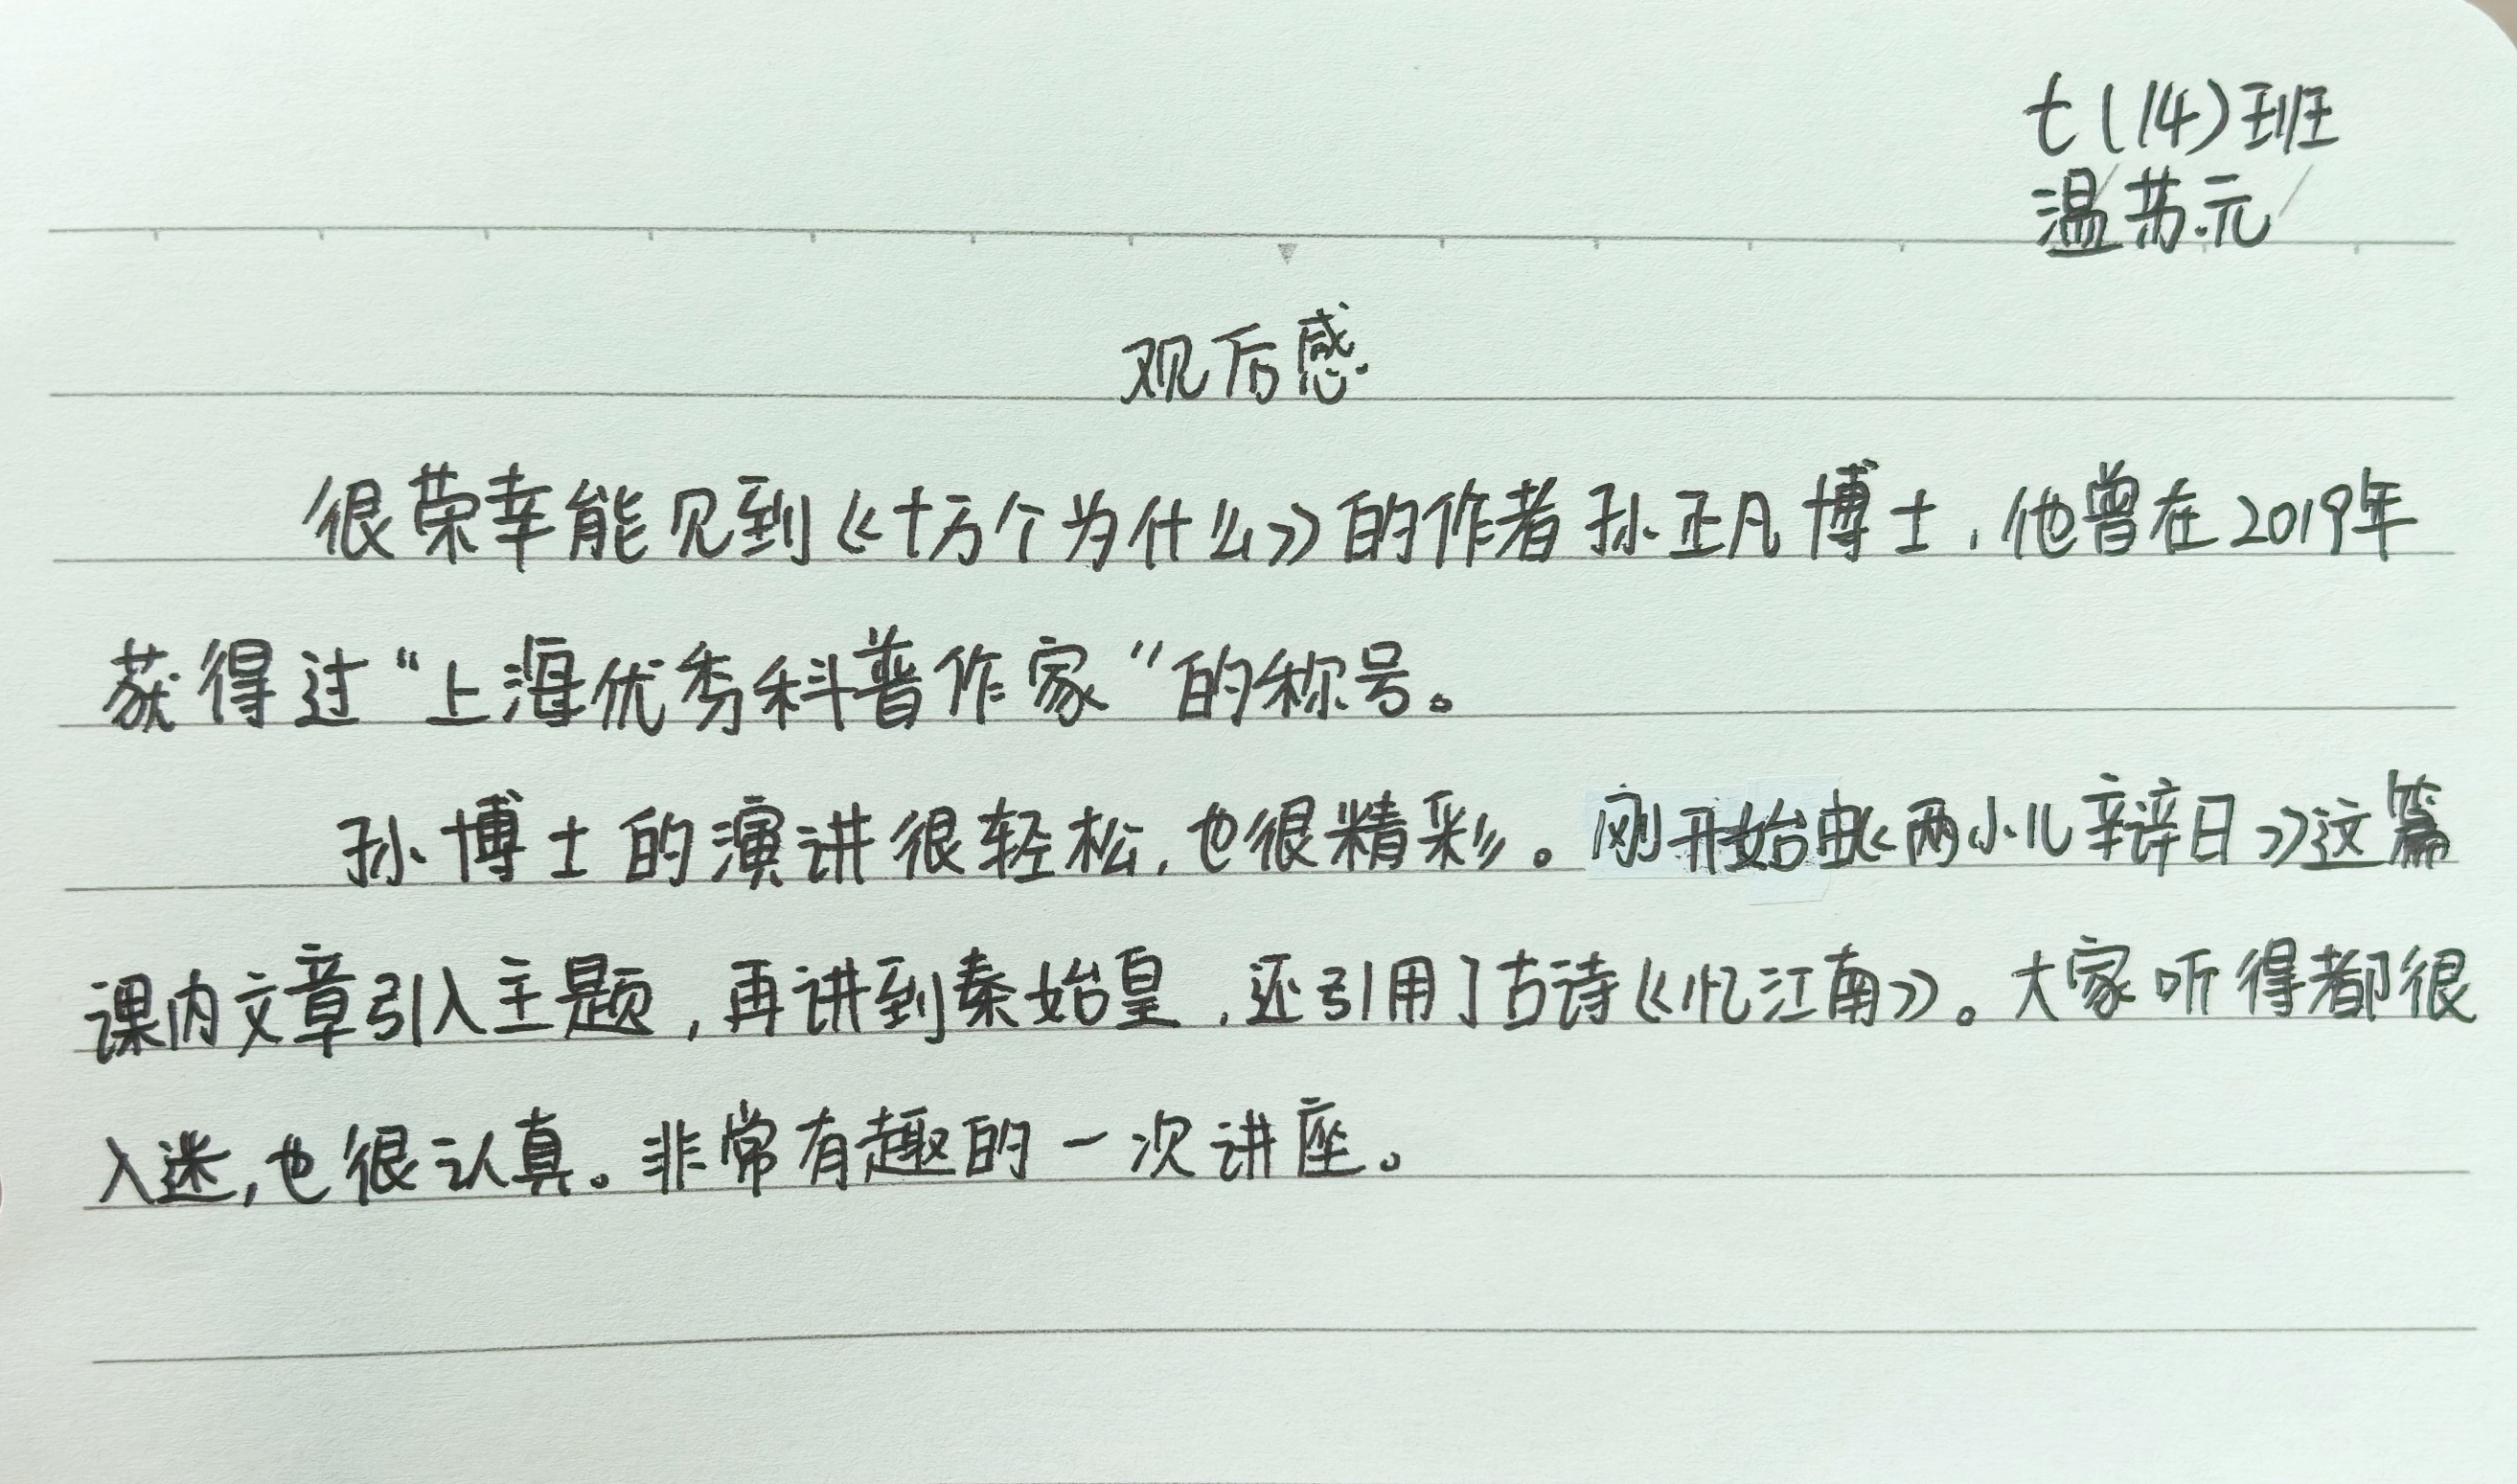 七(14)班
温苏元
观后感
很荣幸能见到《十万个为什么》的作者孙正凡博士,他曾在2019年
获得过“上海优秀科普作家”的称号。
孙博士的演讲很轻松,也很精彩。刚开始由《两小儿辩日》这篇
课内文章引入主题,再讲到秦始皇,还引用了古诗《忆江南》。大家听得都很
入迷,也很认真。非常有趣的一次讲座。